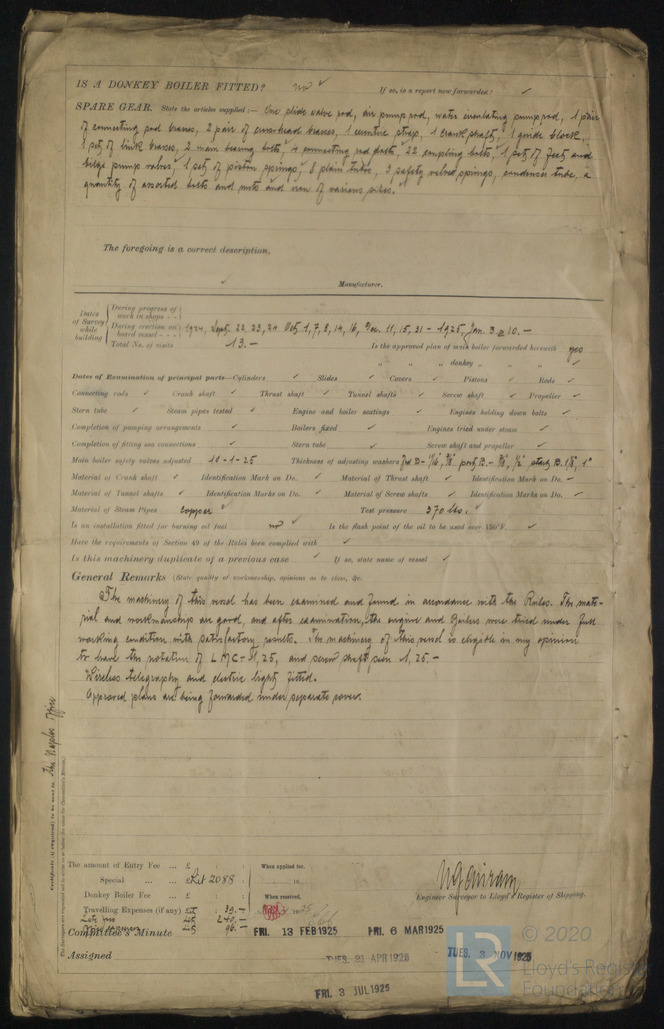 IS A DONKEY BOILER FITTED? no ✓ If so, is a report now forwarded? ✓
SPARE GEAR. State the articles supplied:— One slide valve rod, air pump rod, water circulating pump rod, 1 pair
of connecting rod brasses, 2 pair of crosshead brasses, 1 eccentric strap, 1 crank shaft, 1 guide block,
1 set of link brasses, 2 main bearing bolts, 4 connecting rod bolts, 22 coupling bolts, 1 set of feed and
bilge pump valves, 1 set of piston springs, 8 plain tubes, 3 safety valve springs, condenser tube, a
quantity of assorted bolts and nuts and iron of various sizes.
The foregoing is a correct description,
Manufacturer.
Dates of Survey while building
During progress of work in shops - -
During erection on board vessel - - 1924, Sept. 22, 23, 24 Oct 1, 7, 8, 14, 16, Dec. 11, 15, 31 - 1925, Jan. 3 & 10. -
Total No. of visits 13. - Is the approved plan of main boiler forwarded herewith yes
" " " donkey " " " ✓
Dates of Examination of principal parts—Cylinders ✓ Slides ✓ Covers ✓ Pistons ✓ Rods ✓
Connecting rods ✓ Crank shaft ✓ Thrust shaft ✓ Tunnel shafts ✓ Screw shaft ✓ Propeller ✓
Stern tube ✓ Steam pipes tested ✓ Engine and boiler seatings ✓ Engines holding down bolts ✓
Completion of pumping arrangements ✓ Boilers fixed ✓ Engines tried under steam ✓
Completion of fitting sea connections ✓ Stern tube ✓ Screw shaft and propeller ✓
Main boiler safety valves adjusted 10-1-25 Thickness of adjusting washers
Material of Crank shaft ✓ Identification Mark on Do. ✓ Material of Thrust shaft ✓ Identification Mark on Do. ✓
Material of Tunnel shafts ✓ Identification Marks on Do. ✓ Material of Screw shafts ✓ Identification Marks on Do. ✓
Material of Steam Pipes copper ✓ Test pressure 370 lbs. ✓
Is an installation fitted for burning oil fuel no ✓ Is the flash point of the oil to be used over 150°F. ✓
Have the requirements of Section 49 of the Rules been complied with ✓
Is this machinery duplicate of a previous case ✓ If so, state name of vessel ✓
General Remarks (State quality of workmanship, opinions as to class, &c.
The machinery of this vessel has been examined and found in accordance with the Rules. The mate-
rial and workmanship are good, and after examination, the engine and Boilers were tried under full
working condition with satisfactory results. The machinery of this vessel is eligible in my opinion
to have the notation of LMC - 1, 25, and screw shaft seen 1, 25. -
Wireless telegraphy and electric light fitted.
Approved plans are being forwarded under separate cover.
Certificate (if required) to be sent to The Naples Office
The amount of Entry Fee ... £ : : When applied for,
Special ... ... £Lit 2088 : ... 19
Donkey Boiler Fee ... £ : : When received,
Travelling Expenses (if any) £ : 39.-
240.-
96.-
Engineer Surveyor to Lloyd's Register of Shipping.
Committee's Minute FRI. 13 FEB 1925 FRI. 6 MAR 1925
Assigned TUES. 21 APR 1925 TUES. 3 NOV 1925
FRI. 3 JUL 1925
© 2020
LR
Lloyd's Register
Foundation